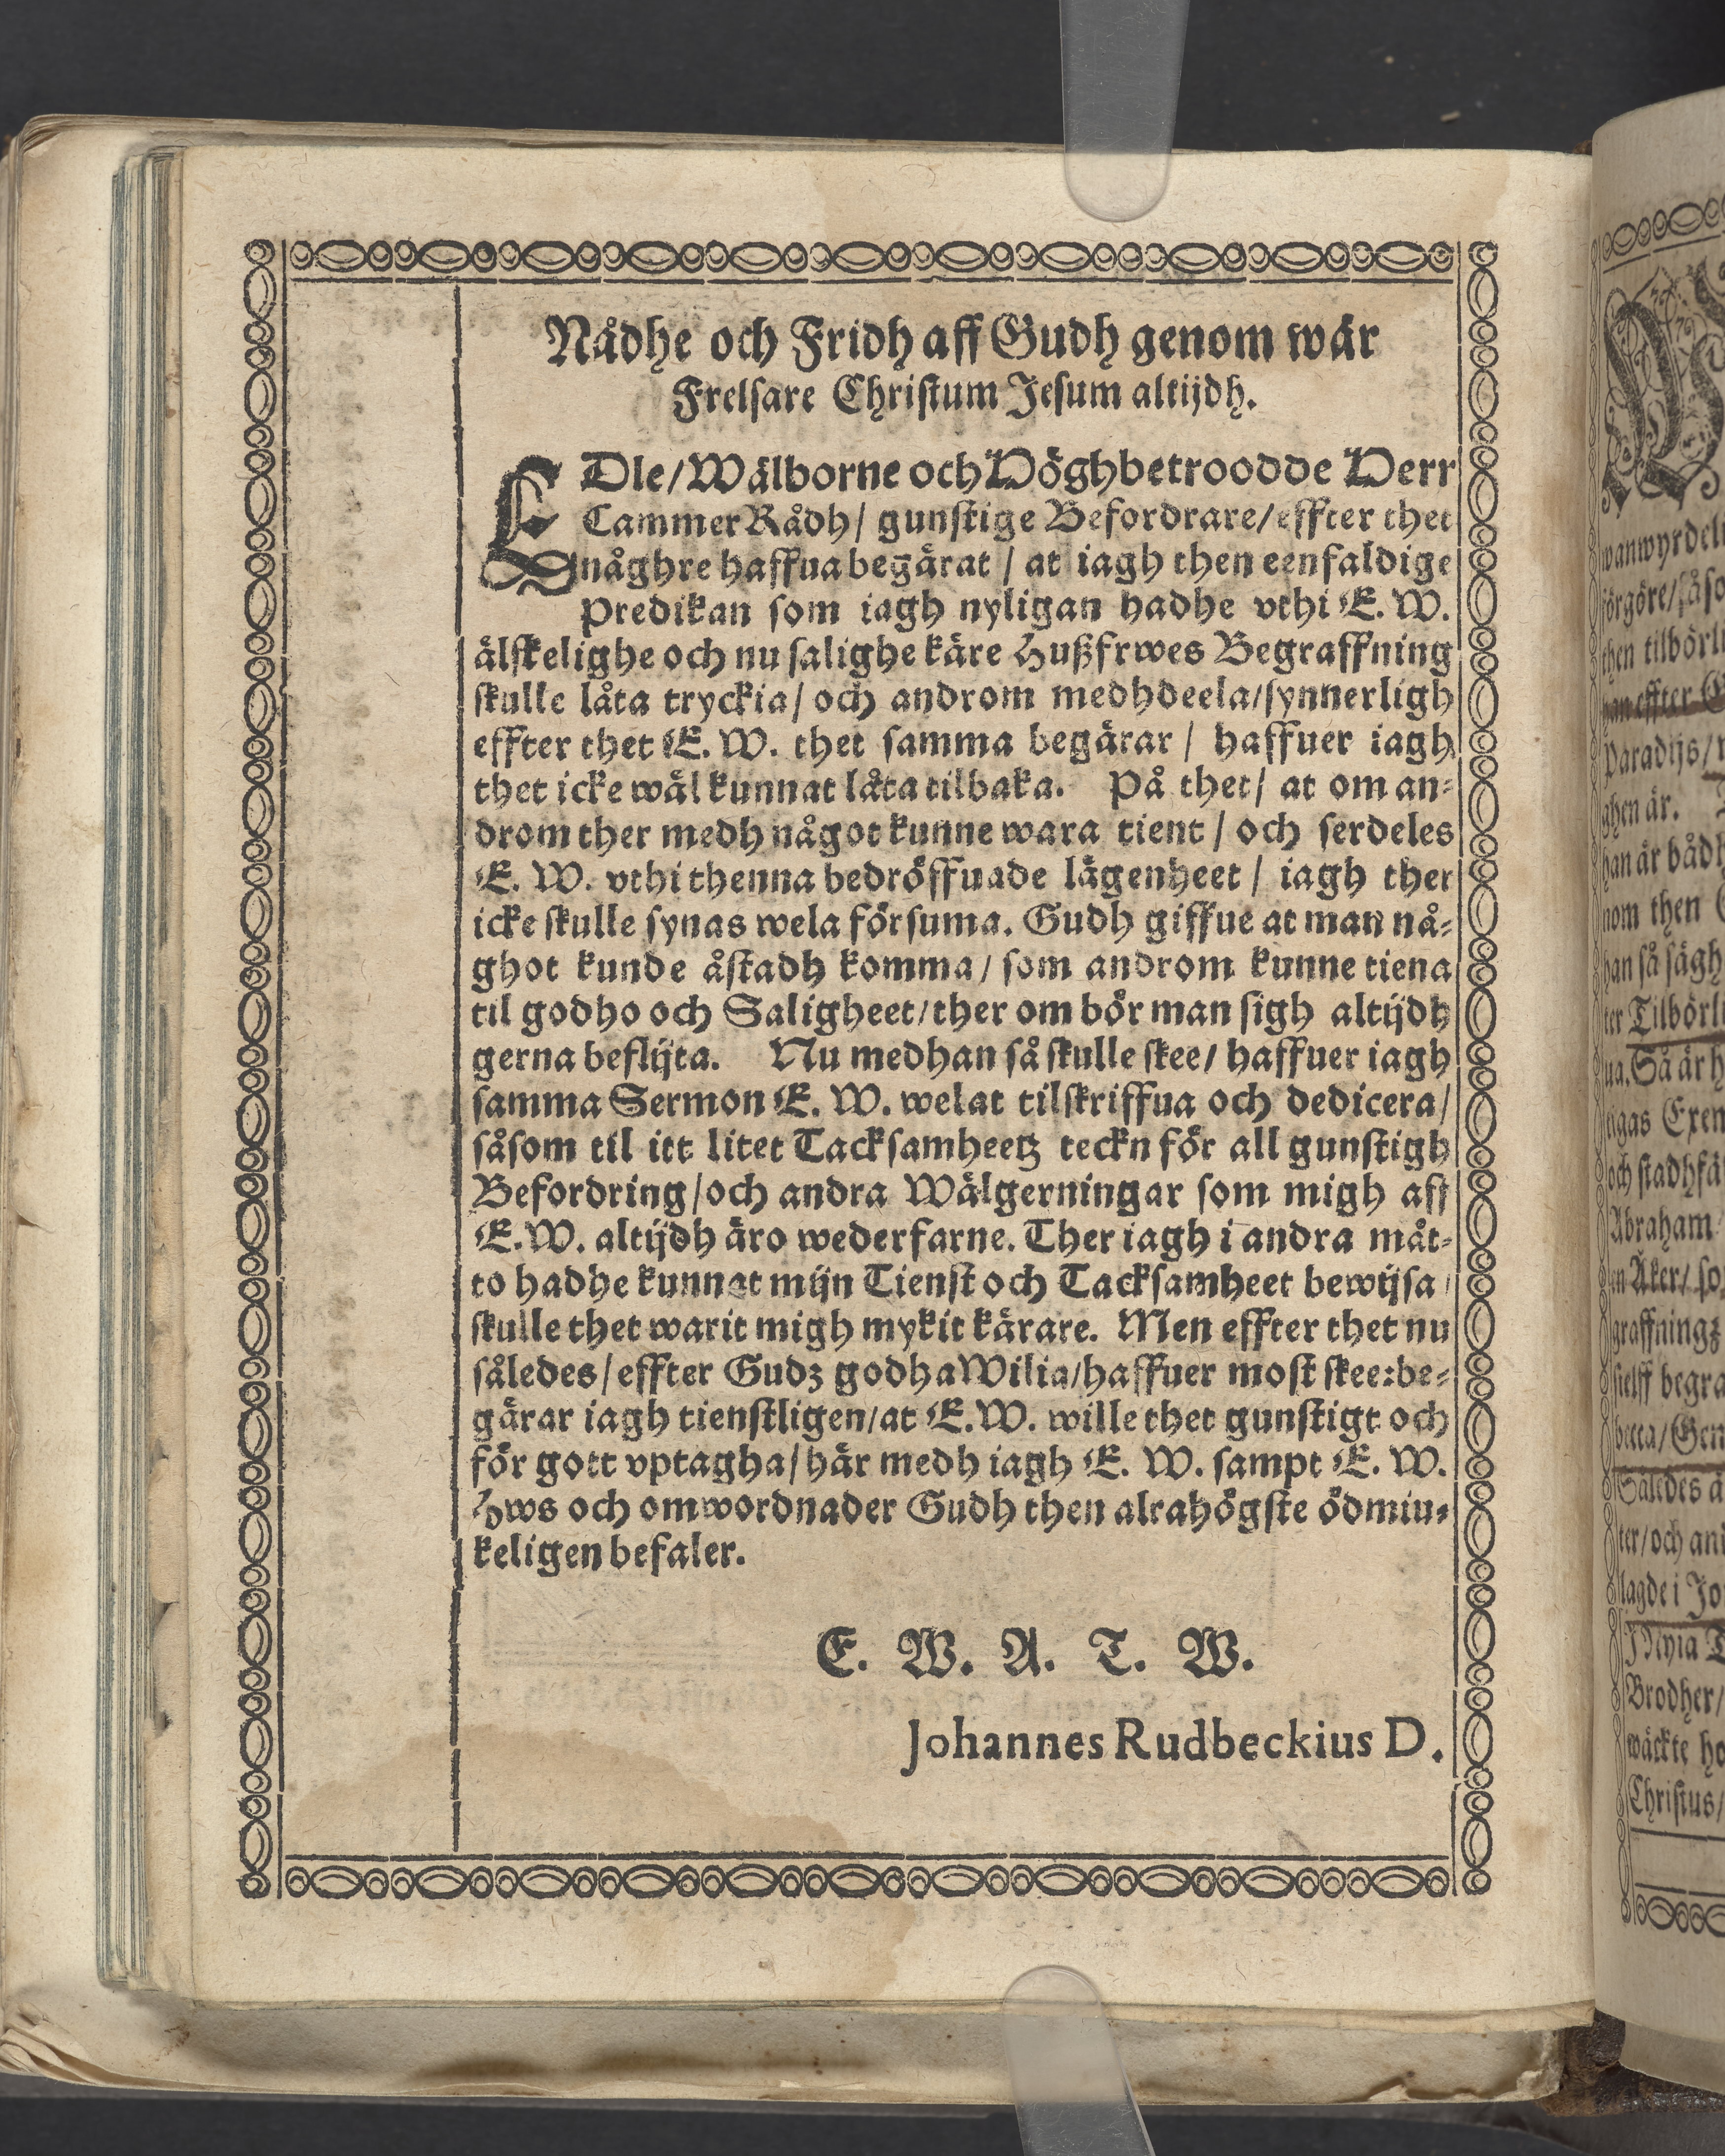 Nådhe och Fridh aff Gudh genom wår
Frelſare Chriſtum Jeſum altijdh.
EDle/Wälborne och Höghbetroodde Herr
CammerRådh/ gunſtige Befordrare/effter thet
någhre haffua begärat / at iagh then eenfaldige
Predikan ſom iagh nyligan hadhe vthi E. W.
älſkelighe och nu ſalighe käre Hußfrwes Begraffning
ſkulle låta tryckia/ och androm medhdeela/ſynnerligh
effter thet E. W. thet ſamma begärar / haffuer iagh
thet icke wäl kunnat låta tilbaka. På thet/ at om an-
drom ther medh något kunne wara tient / och ſerdeles
E. W. vthi thenna bedröffuade lägenheet / iagh ther
icke ſkulle ſynas wela förſuma. Gudh giffue at man nå-
ghot kunde åſtadh komma/ ſom androm kunne tiena
til godho och Saligheet/ther om bör man ſigh altijdh
gerna beflijta. Nu medhan ſå ſkulle ſkee/ haffuer iagh
ſamma Sermon E. W. welat tilſkriffua och dedicera/
ſåſom til itt litet Tackſamheetz teckn för all gunſtigh
Befordring/och andra Wälgerningar ſom migh aff
E.W. altijdh äro wederfarne. Ther iagh i andra måt-
to hadhe kunnat mijn Tienſt och Tackſamheet bewijſa/
ſkulle thet warit migh mykit kärare. Men effter thet nu
således/effter Gudz godha Wilia/haffuer moſt ſkee:be-
gärar iagh tienſtligen/at E.W. wille thet gunſtigt och
för gott vptagha/här medh iagh E. W. ſampt E. W.
Hws och omwordnader Gudh then alrahögſte ödmiu-
keligen befaler.
E. W. A. T. W.
Johannes Rudbeckius D.
wanwyrdel
förgöre/ſåſo
then tilbörl
han effter
Paradijs/
ghen är.
han är bådh
nom then
han ſå ſägh
ter Tilbörl
ua. Så är h
tigas Exem
och ſtadhfä
Abraham
en Åker/ ſo
graffningz
ſielff begra
becca/Gen
Således ä
ter/och an
lagde i Jo
J Nyia T
Brodher/
wäckte ho
Chriſtus/